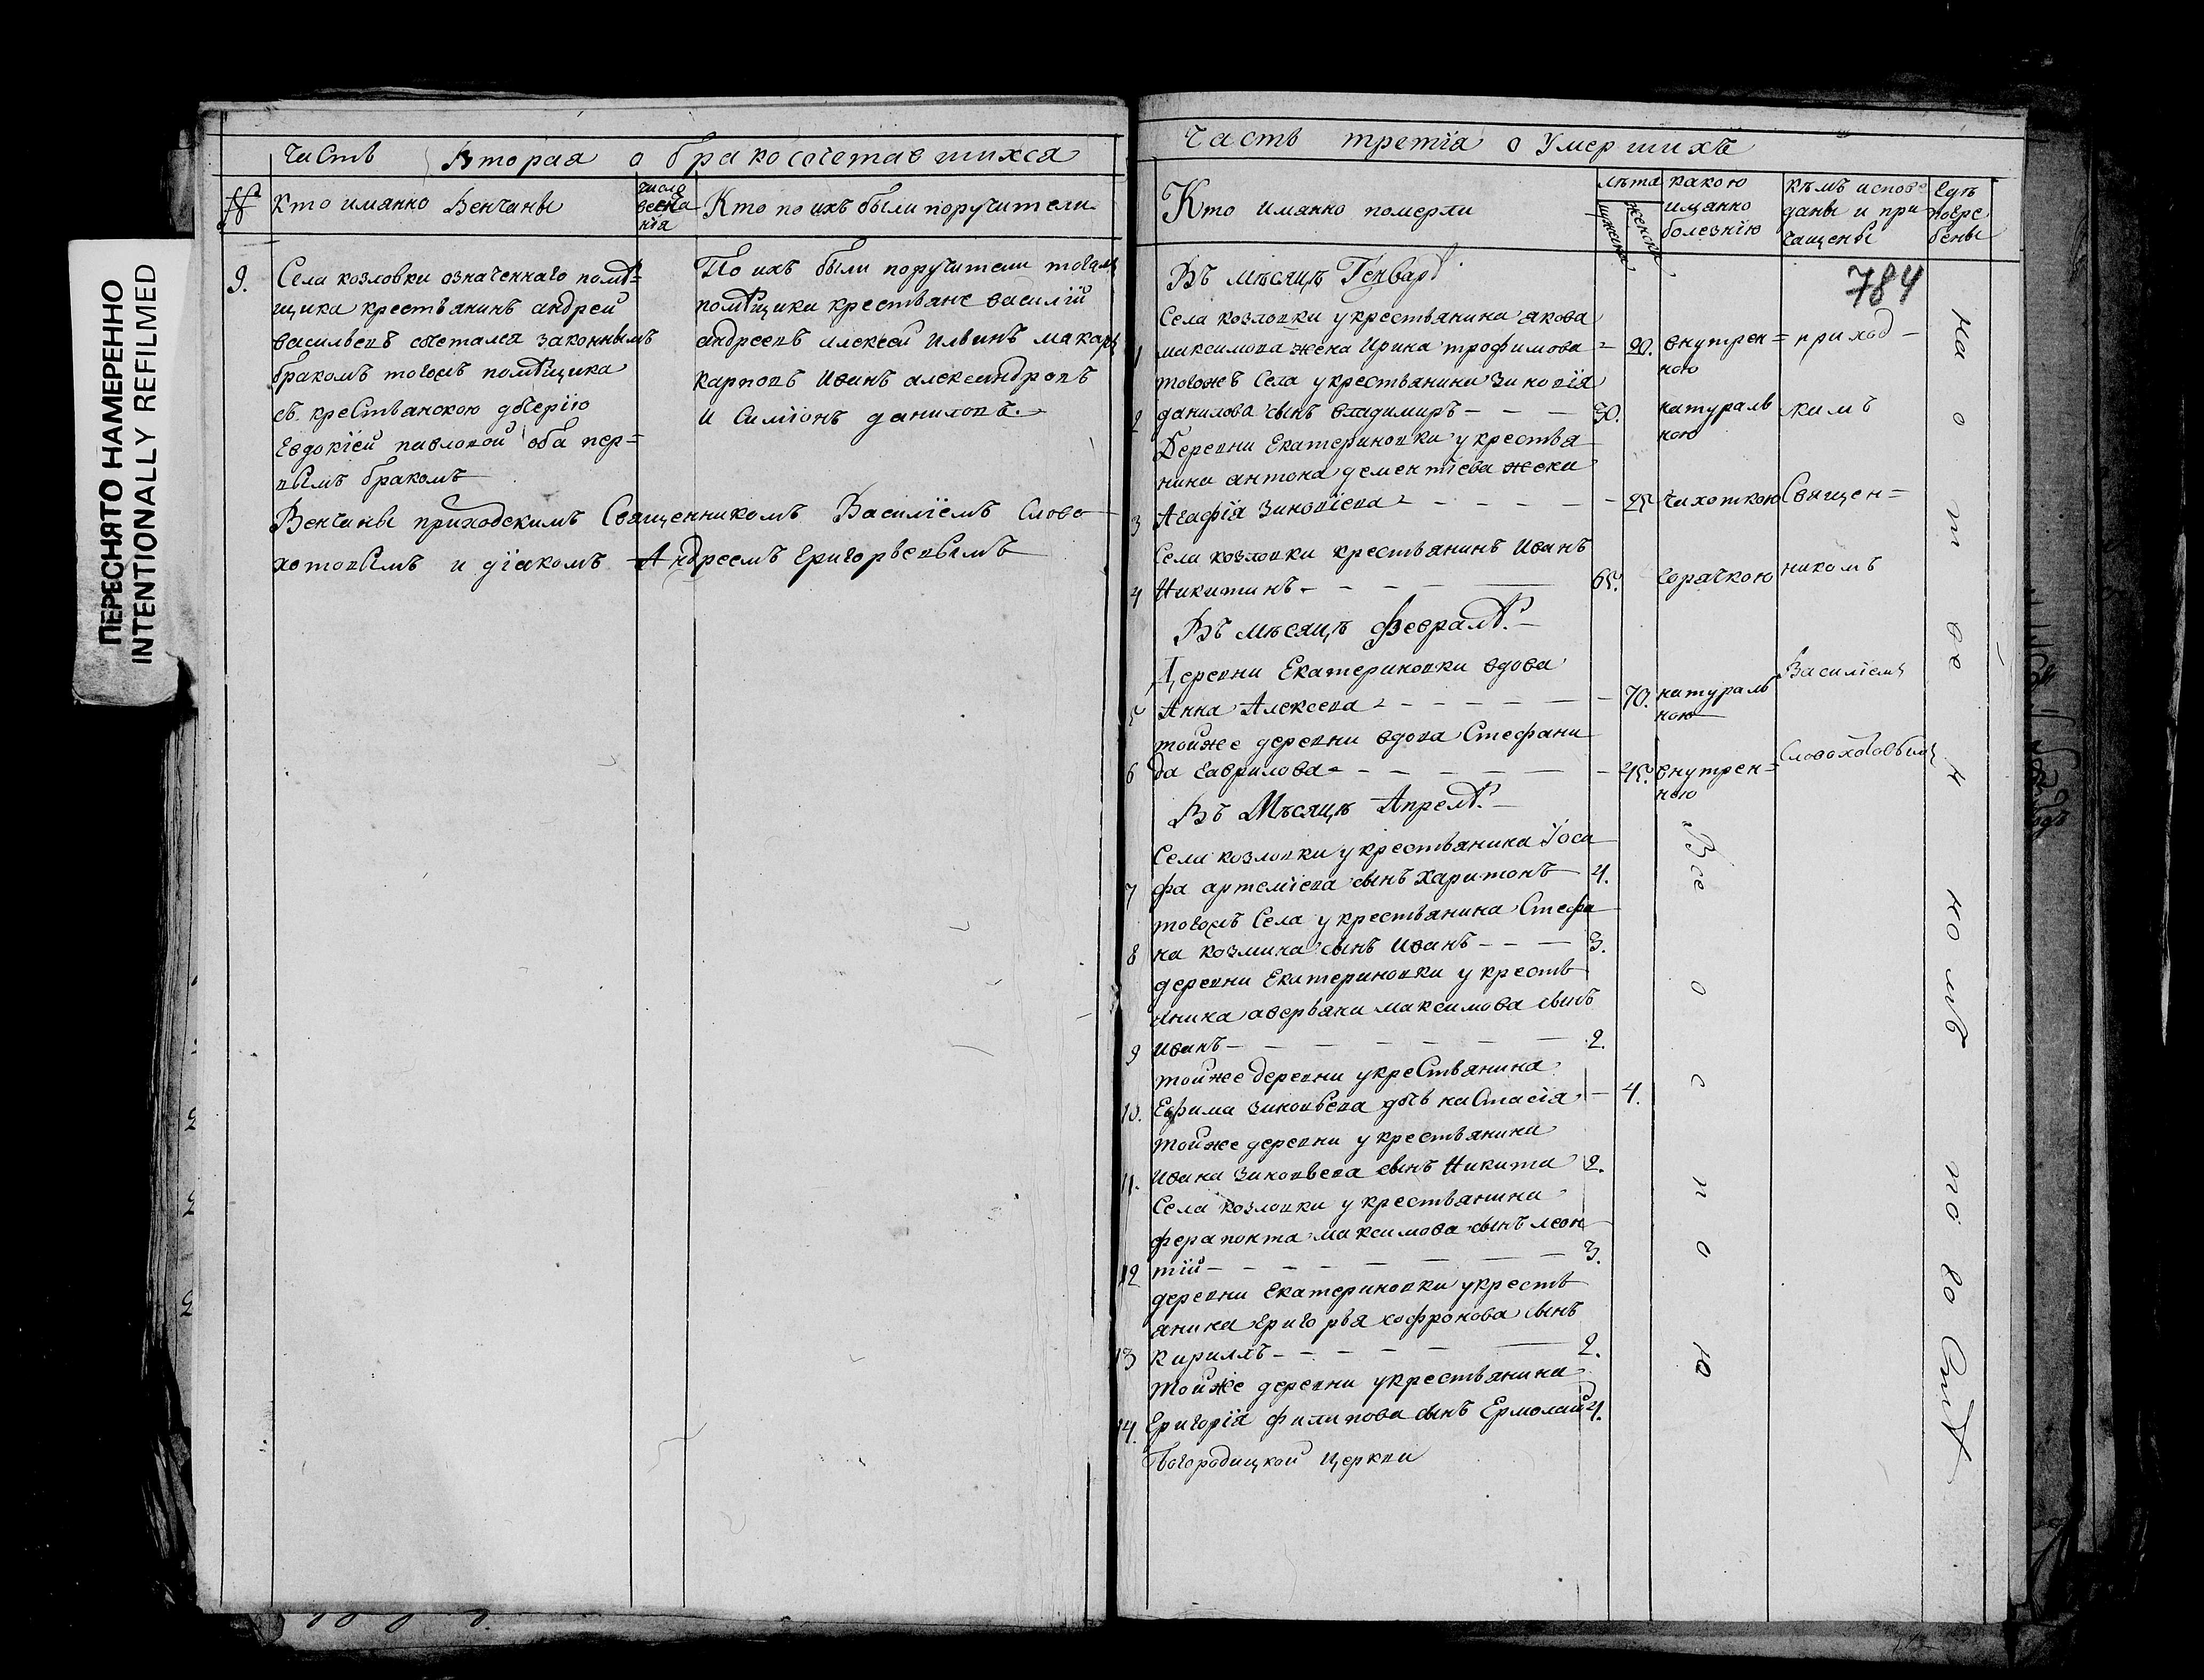 ПЕРЕСНЯТО НАМЕРЕННО
INTENTIONALLY REFILMED
Часть Вторая о бракосочетавшихся
№ Кто имянно Венчаны
число венча нія
Кто по ихъ были поручители
9. Села козловки означеннаго помѣ=
щика крестьянинъ андрей
васильевъ сочетался законнымъ
бракомъ тогожъ помѣщика
съ крестьянскою дочерію
Евдокіей павловой оба пер=
вымъ бракомъ
По ихъ были поручители тогожъ
помѣщики крестьяне василій
андреевъ алексей ильинъ макаръ
карповъ иванъ александровъ
и симіонъ даниловъ.
Венчаны приходскимъ Священникомъ Василіемъ Слово
хотовымъ и діакомъ Андреемъ Григорьевымъ
Часть третія о Умершихъ
Кто имянно померли
лѣта
мужеска
женска
какою
имянно
болезнію
кѣмъ испове
даны и при
чащены
Гдѣ
погре
бены
784
Въ мѣсяцѣ Генварѣ
Села козловки у крестьянина якова
1 максимова жена Ирина трофимова - 20. внутрен= приход-
ною
тогожъ Села у крестьянина Зиновія
2 данилова сынъ владимиръ - - - 30. натураль кимъ
ною
Деревни Екатериновки у крестья
нина антона дементіева жена
3 Агафія Зиновіева - - - - 25 чихоткою Священ=
Села козловки крестьянинъ Иванъ
4 Никитинъ - - - 65. горячкою никомъ
Въ мѣсяцѣ Февралѣ.
Деревни Екатериновки вдова
Василіемъ
5 Анна Алексеева - - - - 70. натураль
ною
тойже деревни вдова Стефани
Словохотовымъ
6 да гаврилова - - - - 45. внутрен=
ною
Въ Мѣсяцѣ Апрелѣ.
Села козловки у крестьянина Іоси
7 фа артеміева сынъ харитонъ 4.
тогожъ Села у крестьянина Стефа
8 на козмина сынъ Иванъ - - - 3.
деревни Екатериновки у кресть
янина аверьяна максимова сынъ
9 иванъ - - - - - 2.
тойже деревни у крестьянина
10. Ефима зиновьева дочь настасія - 4.
тойже деревни у крестьянина
11. Ивана зиновьева сынъ Никита 2.
Села козловки у крестьянина
ферапонта максимова сынъ леон
12 тій - - - - - 3.
деревни Екатериновки у кресть
янина григорья софронова сынъ
13 кириллъ - - - - 2.
тойже деревни у крестьянина
14. Григорія филипова сынъ Ермолай 4.
Богородицкой церкви
Все оспою
на отвеном погосте